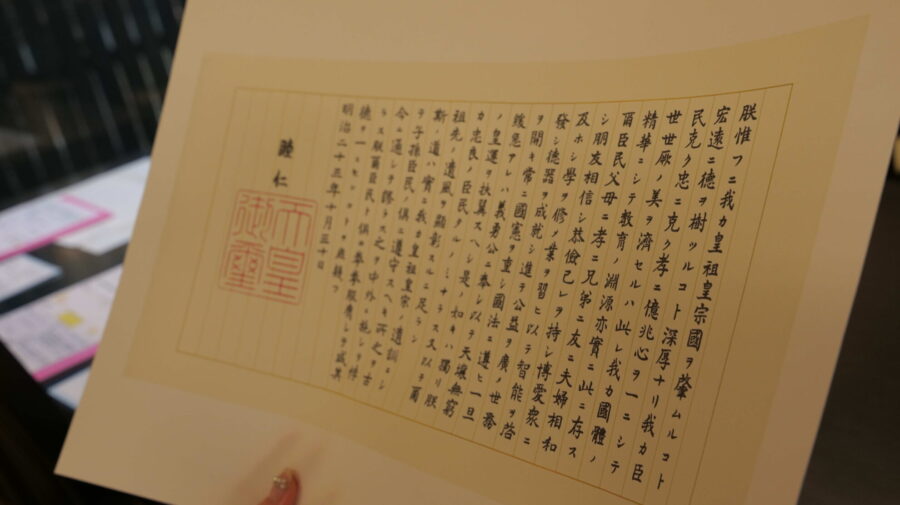 朕惟フニ我カ皇祖皇宗國ヲ肇ムルコト
宏遠ニ德ヲ樹ツルコト深厚ナリ我カ臣
民克ク忠ニ克ク孝ニ億兆心ヲ一ニシテ
世世厥ノ美ヲ濟セルハ此レ我カ國體ノ
精華ニシテ教育ノ淵源亦實ニ此ニ存ス
爾臣民父母ニ孝ニ兄弟ニ友ニ夫婦相和
シ朋友相信シ恭儉己レヲ持シ博愛衆ニ
及ホシ學ヲ修メ業ヲ習ヒ以テ智能ヲ啓
發シ德器ヲ成就シ進テ公益ヲ廣メ世務
ヲ開キ常ニ國憲ヲ重シ國法ニ遵ヒ一旦
緩急アレハ義勇公ニ奉シ以テ天壤無窮
ノ皇運ヲ扶翼スヘシ是ノ如キハ獨リ朕
カ忠良ノ臣民タルノミナラス又以テ爾
祖先ノ遺風ヲ顯彰スルニ足ラン
斯ノ道ハ實ニ我カ皇祖皇宗ノ遺訓ニシ
テ子孫臣民ノ俱ニ遵守スヘキ所之ヲ古
今ニ通シテ謬ラス之ヲ中外ニ施シテ悖
ラス朕爾臣民ト俱ニ拳拳服膺シテ咸其
德ヲ一ニセンコトヲ庶幾フ
明治二十三年十月三十日
睦仁
天皇
御璽